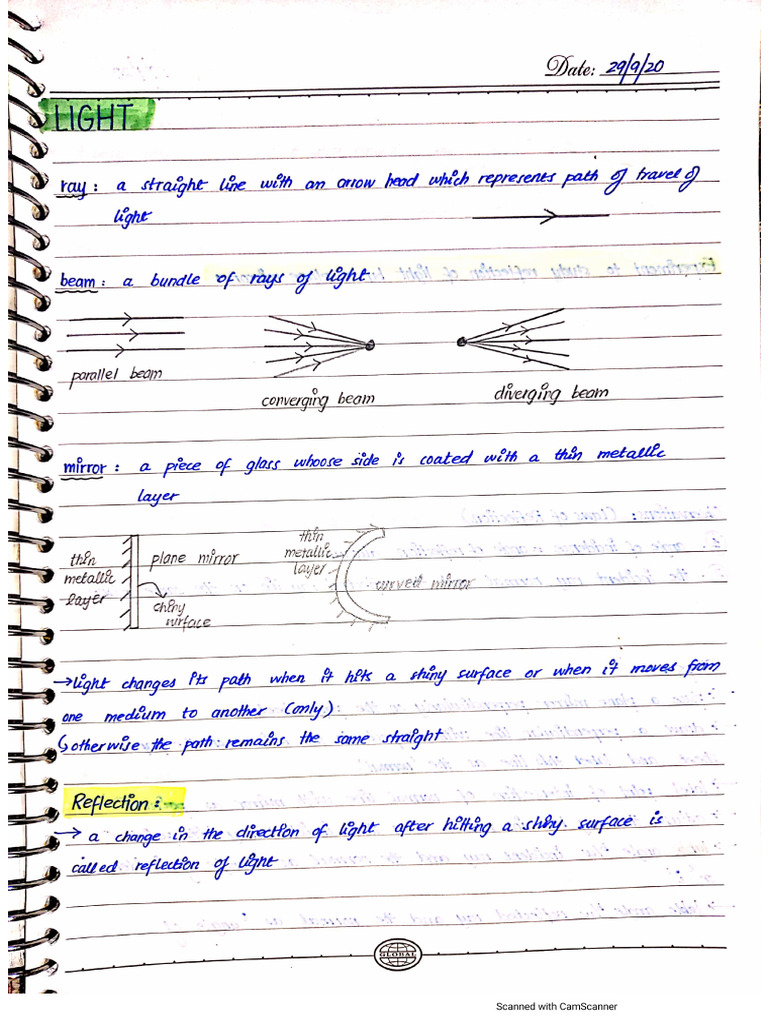 Date: 29/9/20
LIGHT
ray: a straight line with an arrow head which represents path of travel of
light
beam: a bundle of rays of light
parallel beam
converging beam
diverging beam
mirror: a piece of glass whoose side is coated with a thin metallic
layer
thin
metallic
layer
plane mirror
shiny
surface
thin
metallic
layer
curved mirror
→light changes its path when it hits a shiny surface or when it moves from
one medium to another (only)
↳otherwise the path remains the same straight
Reflection:
→ a change in the direction of light after hitting a shiny surface is
called reflection of light
GLOBAL
Scanned with CamScanner